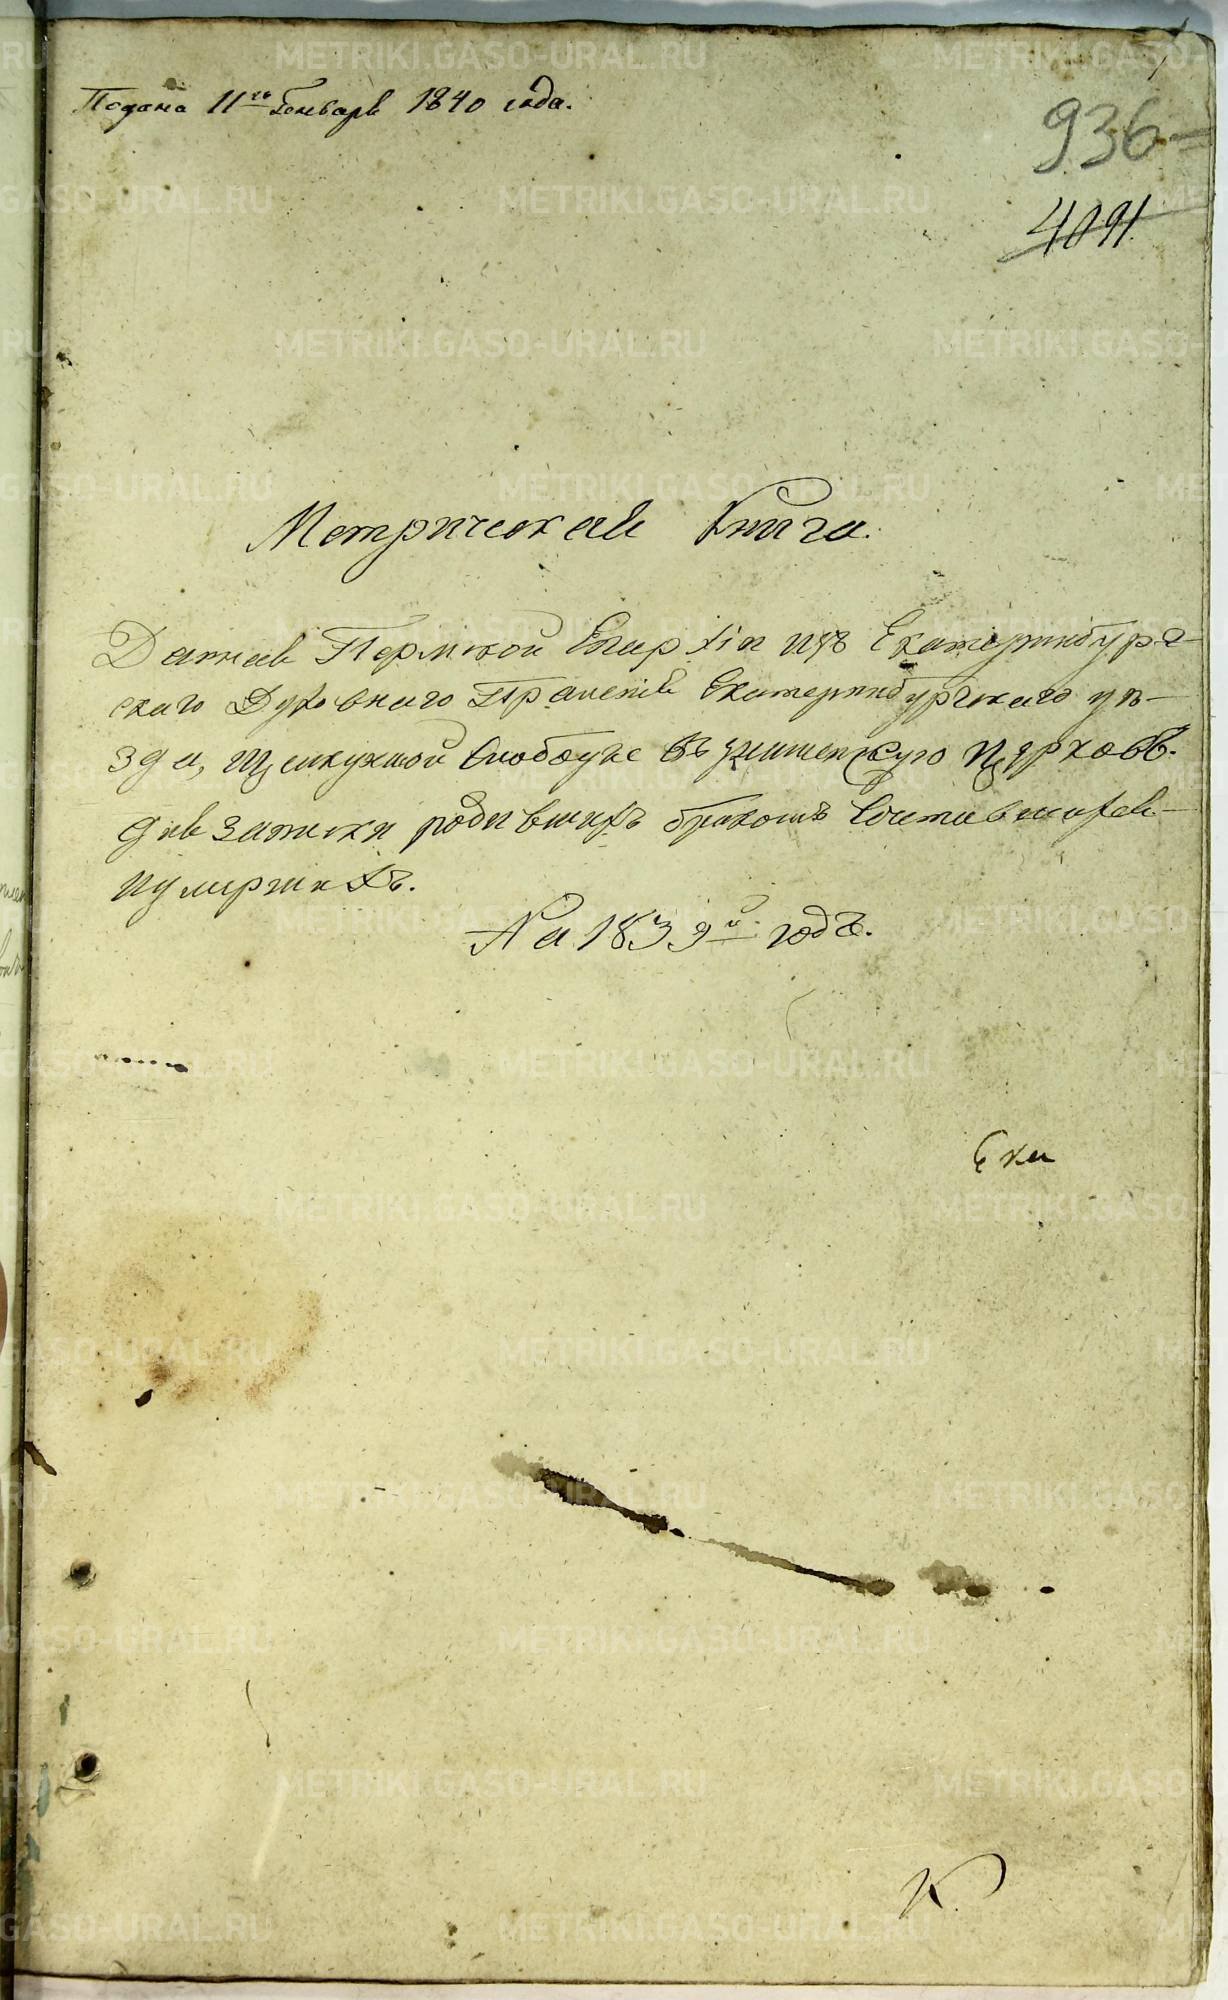 Подана 11го Генваря 1840 года.
936
4091.
Метрическая Книга.
Данная Пермской Епархіи изъ Екатеринбург-
скаго Духовнаго Правленія Екатеринбургскаго уѣ-
зда, Щелкунской Слободы въ цырковь.
для записки родившихъ бракомъ Сочетавшихся
Иумершихъ.
На 1839й годъ.
Ека
METRIKI.GASO-URAL.RU